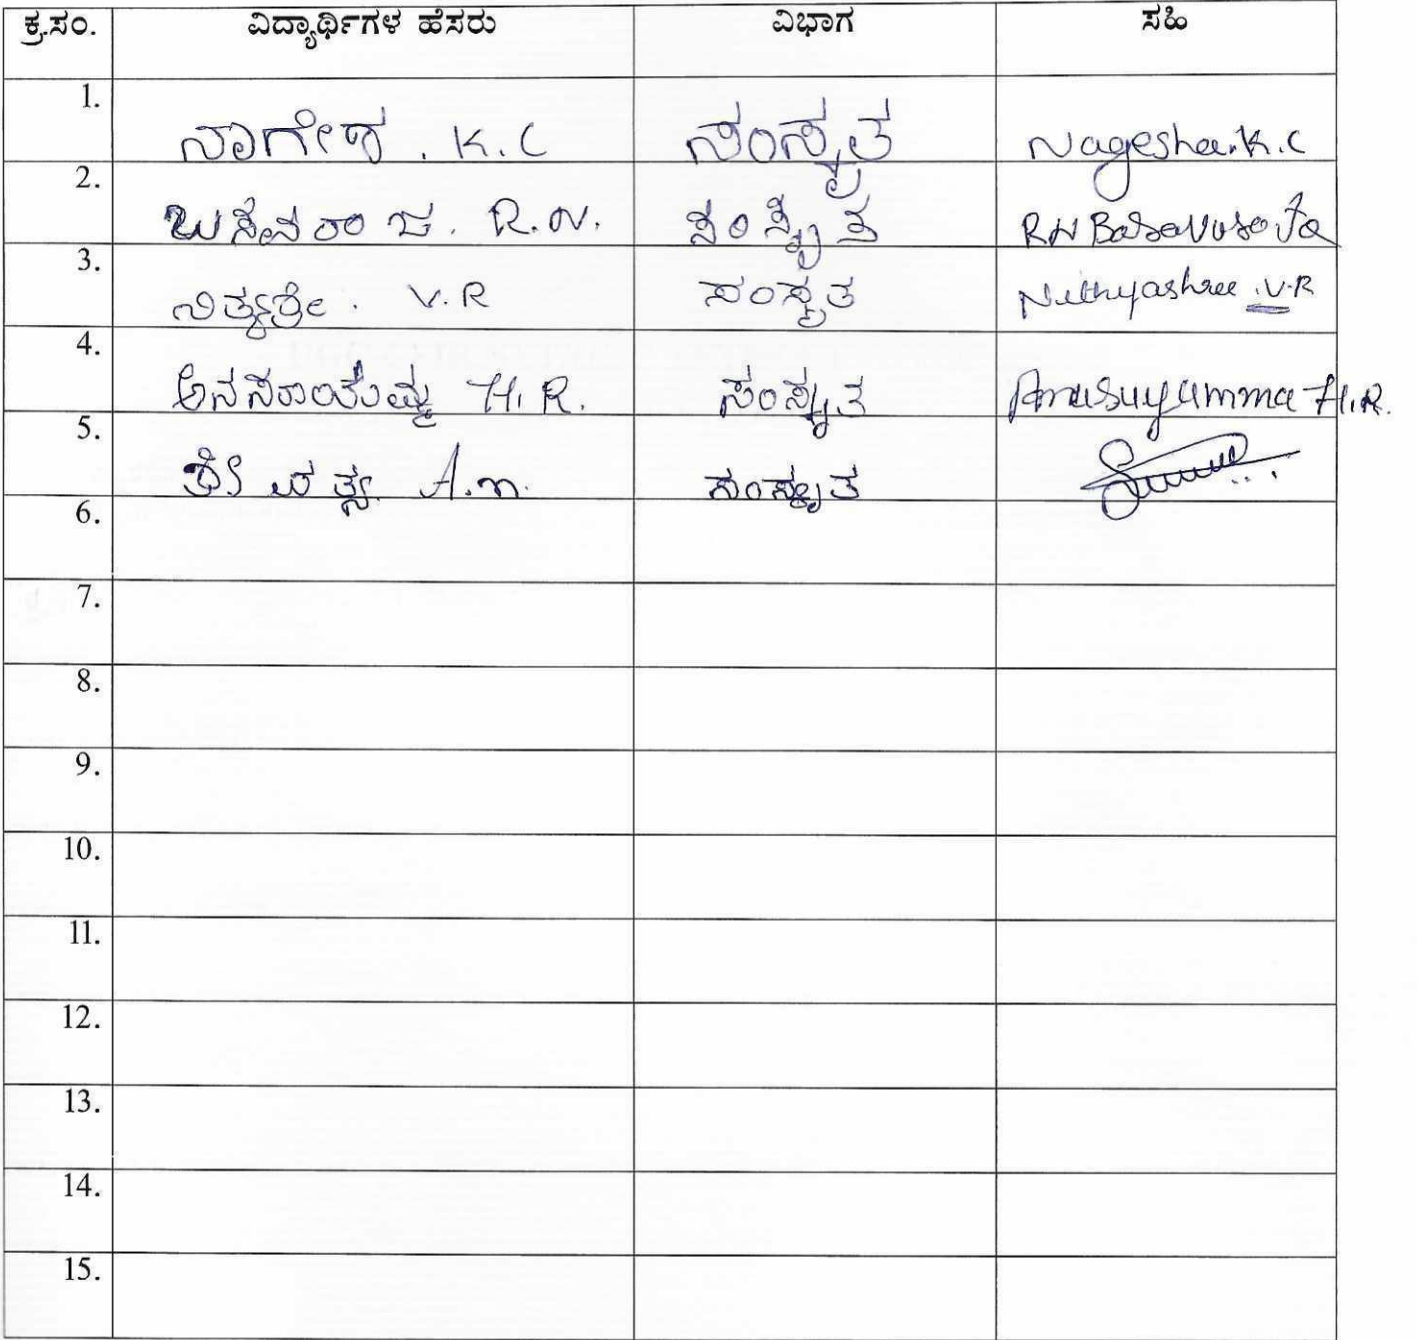 ಕ್ರ.ಸಂ. ವಿದ್ಯಾರ್ಥಿಗಳ ಹೆಸರು ವಿಭಾಗ ಸಹಿ
1. ನಾಗೇಶ . K. C ಸಂಸ್ಕೃತ Nagesha.K.C
2. ಬಸವರಾಜ. R.N. ಸಂಸ್ಕೃತ RN Basavaraja
3. ನಿತ್ಯಶ್ರೀ . V.R ಸಂಸ್ಕೃತ Nithyashree .V.R
4. ಅನಸೂಯಮ್ಮ H.R. ಸಂಸ್ಕೃತ Anusuyamma H.R.
5. ಶ್ರೀವತ್ಸ. A.n. ಸಂಸ್ಕೃತ
6.
7.
8.
9.
10.
11.
12.
13.
14.
15.